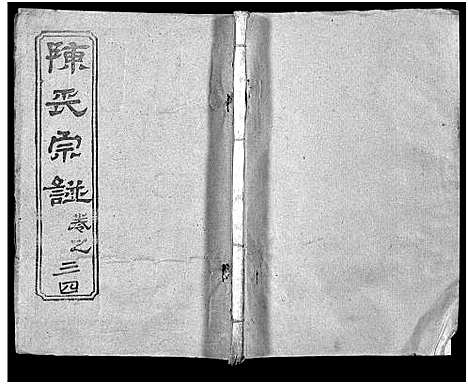 陳氏宗譜
卷之三四